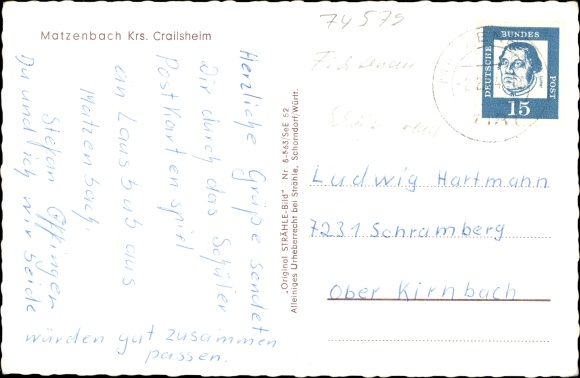 74579
Matzenbach Krs. Crailsheim
Herzliche Grüße sendet
Dir durch das Schüler
Postkartenspiel
ein Lausbub aus
Matzenbach.
Stefan Effinger
Du und ich wir beide
würden gut zusammen
passen.
„Original STRÄHLE-Bild" Nr. 8-563/SeE 62
Alleiniges Urheberrecht bei Strähle, Schorndorf/Württ.
DEUTSCHE BUNDESPOST
15
Ludwig Hartmann
7231 Schramberg
Ober Kirnbach